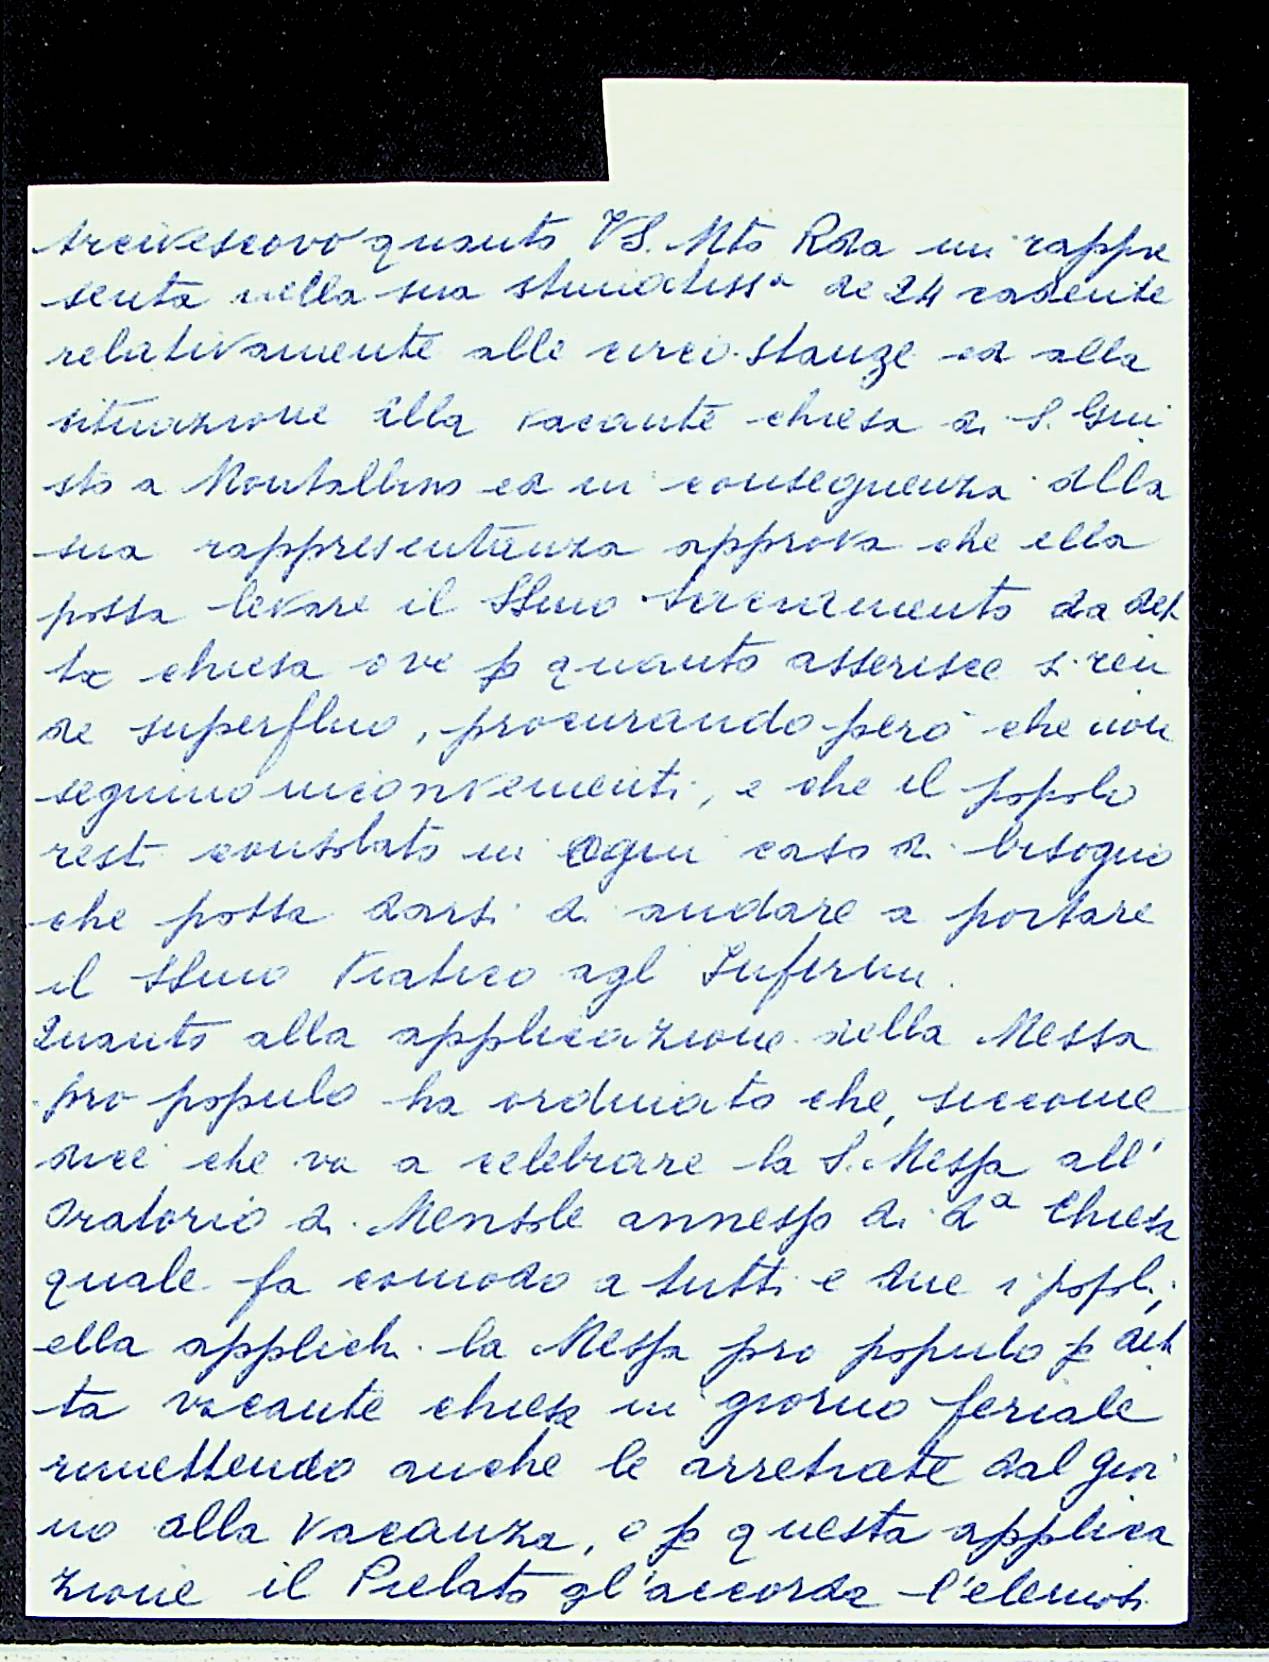 Arcivescovo quanto VS. Mto Rda mi rappre
senta nella sua stimatissa de 24 cadente
relativamente alle circostanze ed alla
situazione della vacante chiesa di S. Giu
sto a Montalbino ed in conseguenza della
sua rappresentanza approva che ella
possa levare il SSmo Sacramento da det
ta chiesa ove p quanto asserisce si ren
de superfluo, procurando però che non
seguino inconvenienti, e che il popolo
resti consolato in ogni caso di bisogno
che possa darsi di andare a portare
il SSmo Viatico agl Infermi.
Quanto alla applicazione della Messa
pro populo ha ordinato che, siccome
dice che va a celebrare la S. Messa all'
Oratorio di Mensole annesso di da Chiesa
quale fa comodo a tutti e due i popoli,
ella applichi la Messa pro populo p det
ta vacante chiesa in giorno feriale
rimettendo anche le arretrate dal gior
no alla vacanza, e p questa applica
zione il Prelato gl'accorda l'elemosi